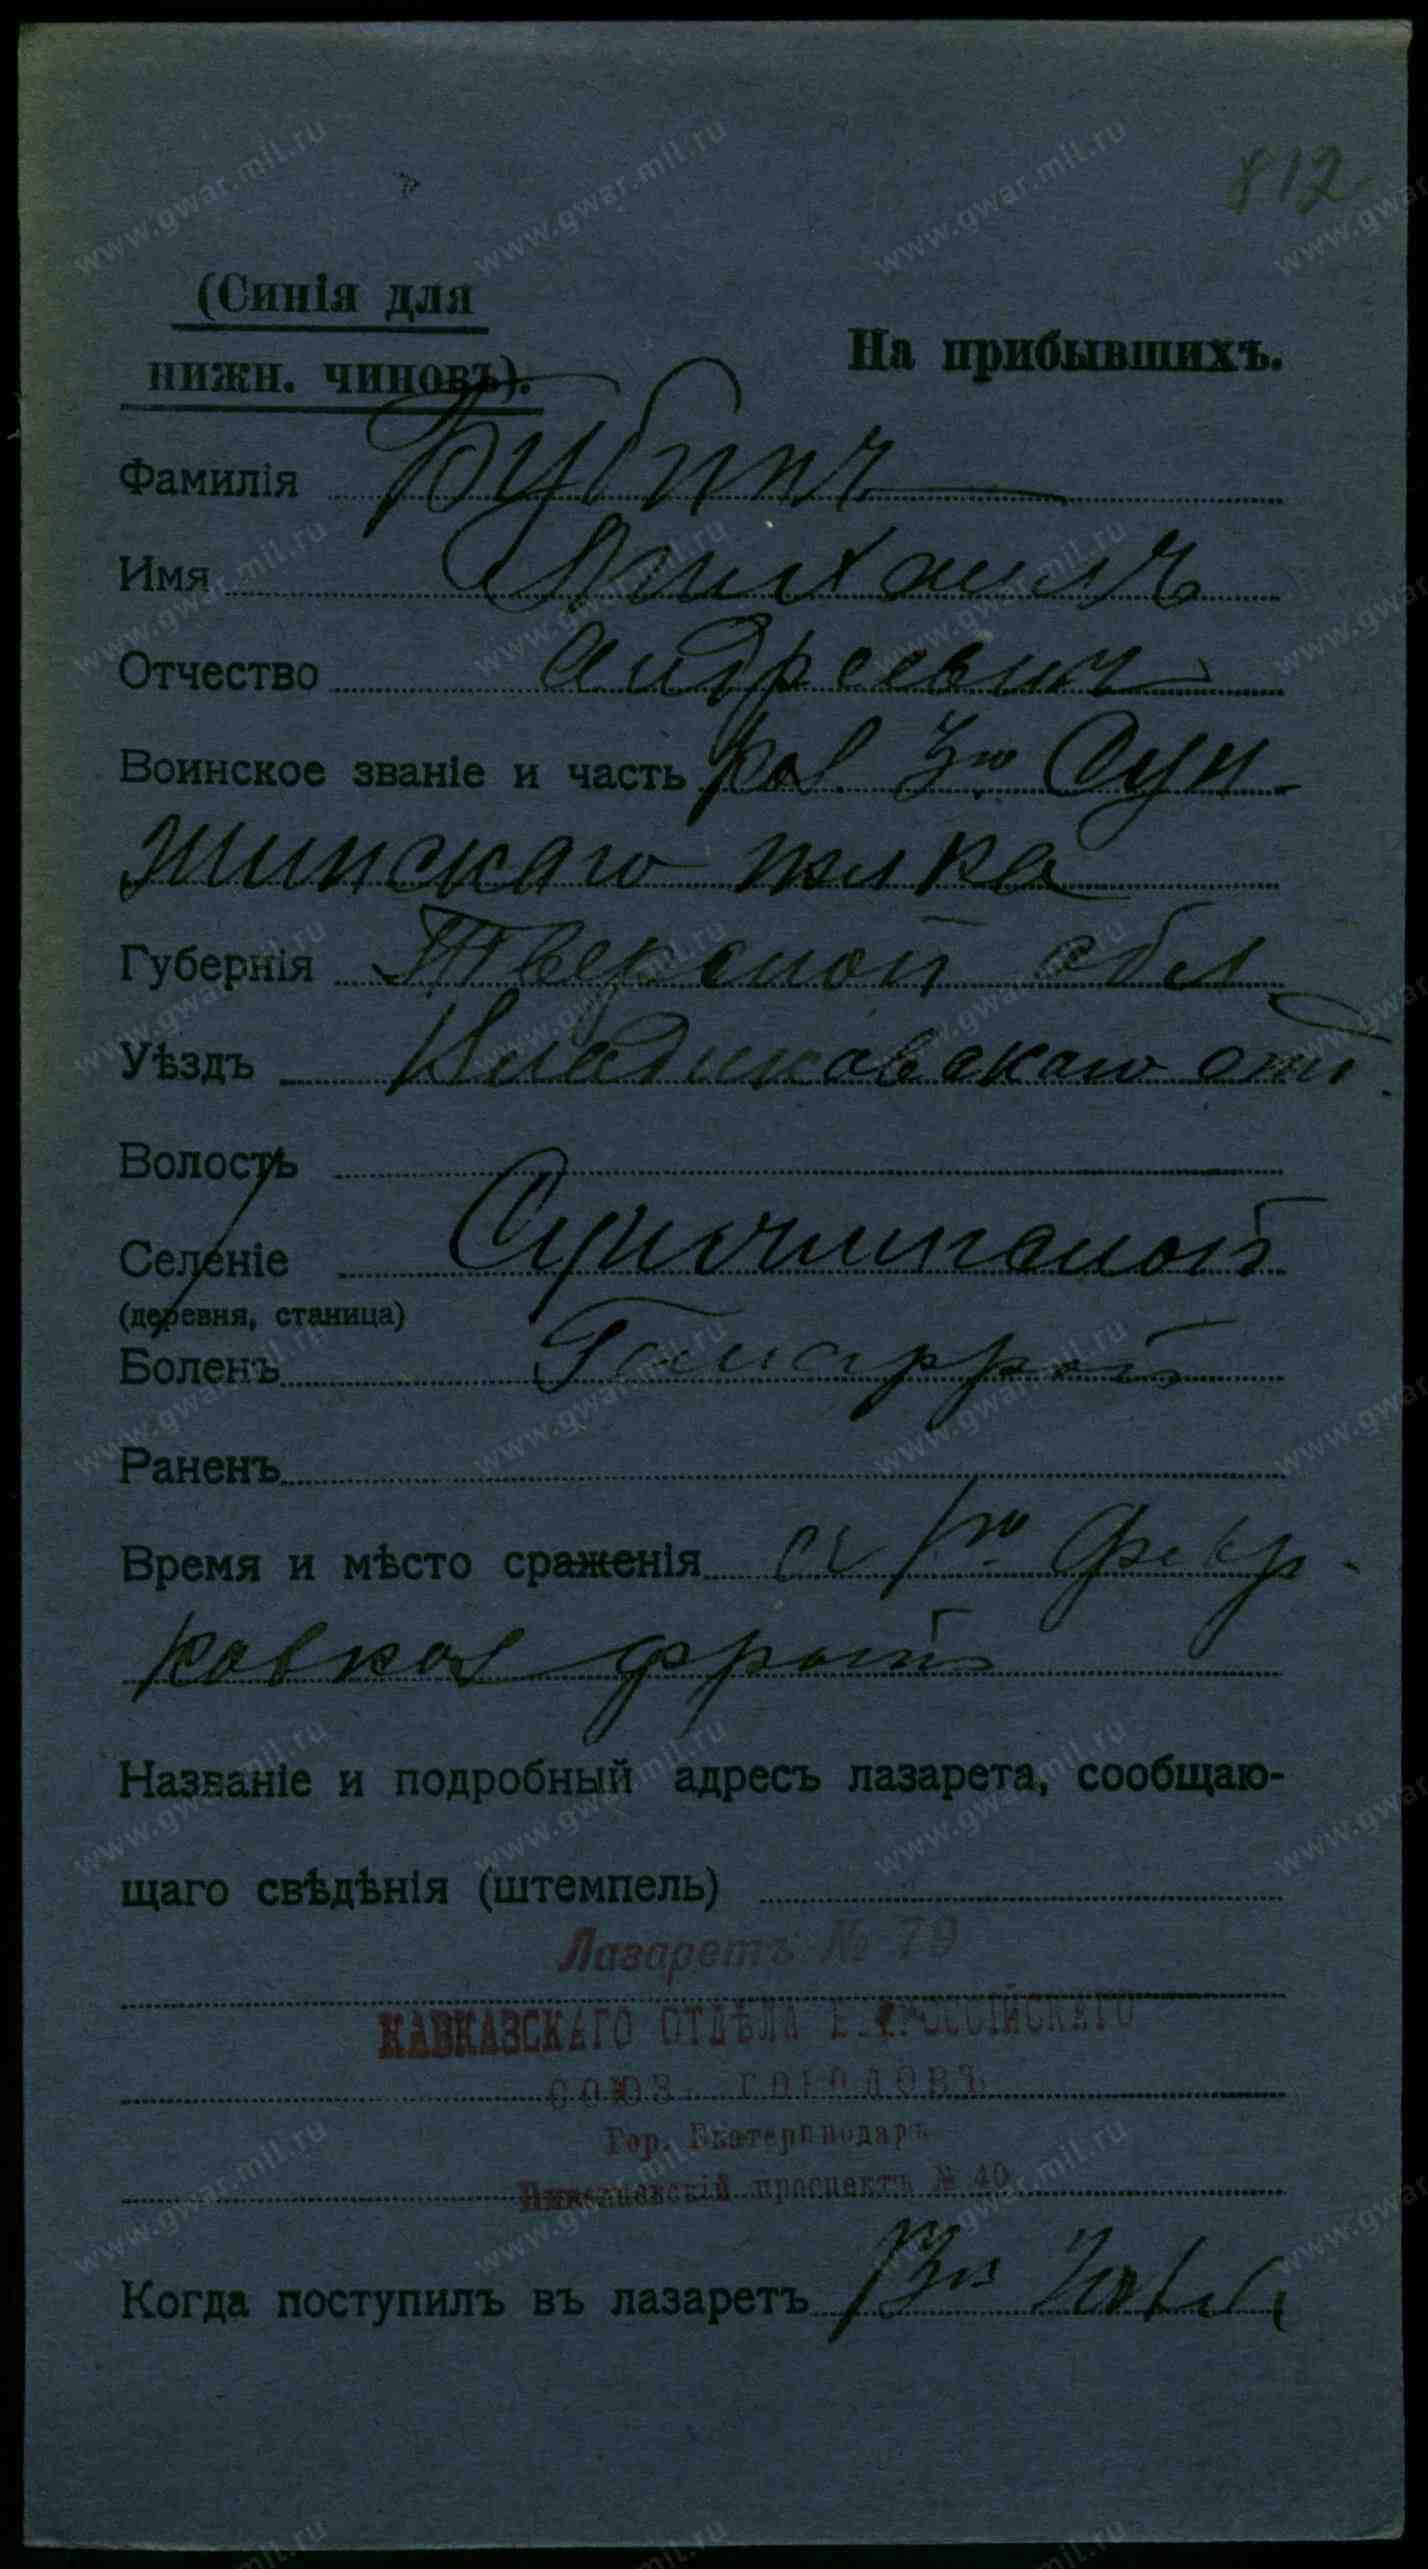 812
(Синія для
нижн. чиновъ).
На прибывшихъ.
Фамилія Бубничъ
Имя Михаилъ
Отчество Андреевич
Воинское званіе и часть каз. 3го Сун-
жинскаго полка
Губернія Тверской обл
Уѣздъ Владикавскаго отд.
Волость
Селеніе Сунжинской
(деревня, станица)
Боленъ
Раненъ
Время и мѣсто сраженія съ 1го Февр.
кавказ фронтъ
Названіе и подробный адресъ лазарета, сообщаю-
щаго свѣдѣнія (штемпель)
Лазаретъ № 79
КАВКАЗСКАГО ОТДѢЛА ВСЕРОССІЙСКАГО
СОЮЗА ГОРОДОВЪ
Гор. Екатеринодаръ
проспектъ № 40
Когда поступилъ въ лазаретъ
www.gwar.mil.ru